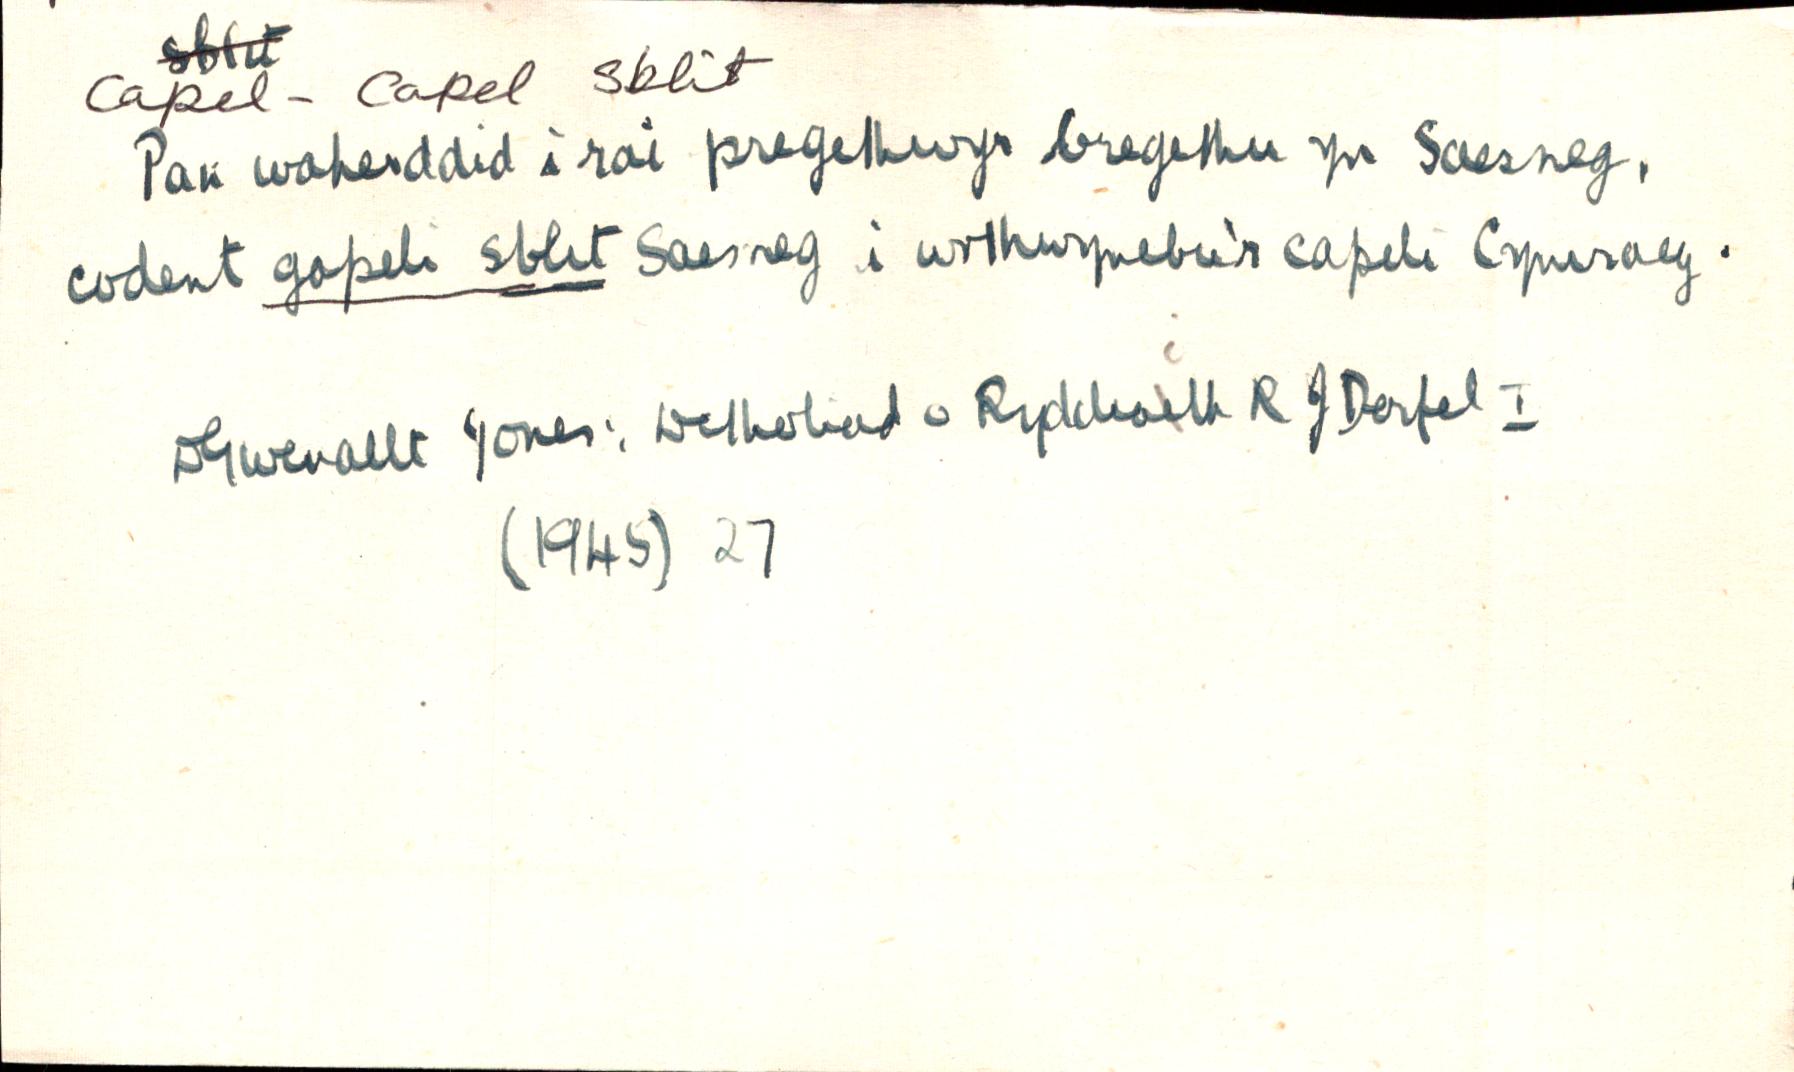 sblit
Capel - Capel Sblit
Pan waherddid i rai pregethwyr bregethu yn Saesneg,
codent gapeli sblit Saesneg i wrthwynebu'r capeli Cymraeg.
D Gwenallt Jones: Detholiad o Ryddiaith R J Derfel I
(1945) 27